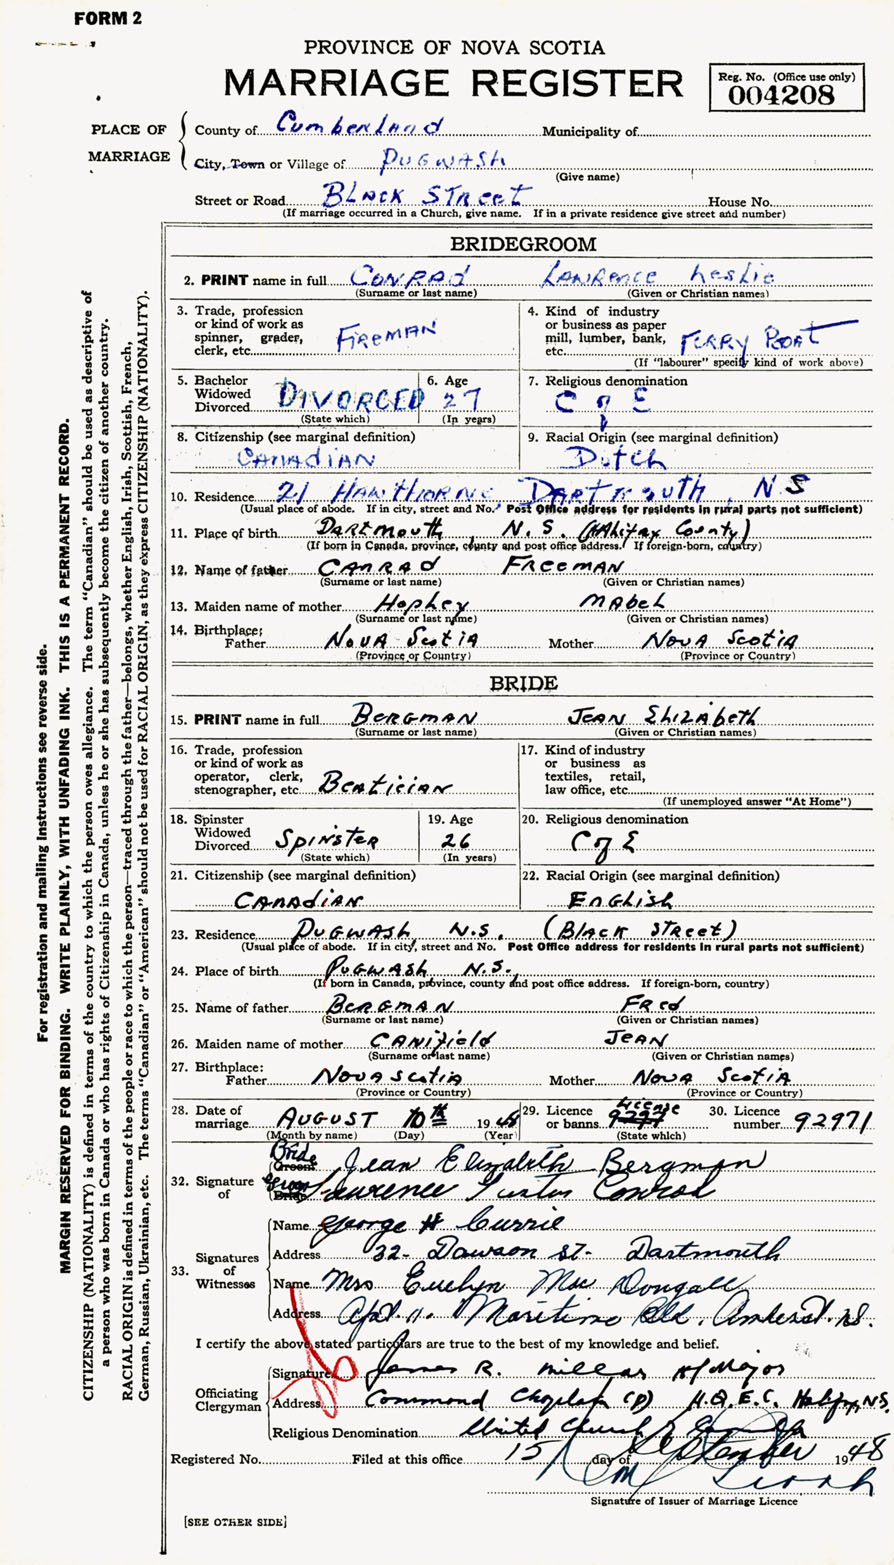 FORM 2
PROVINCE OF NOVA SCOTIA
MARRIAGE REGISTER
Reg. No. (Office use only)
004208
PLACE OF MARRIAGE
County of Cumberland Municipality of
City, Town or Village of Pugwash
(Give name)
Street or Road Black Street House No.
(If marriage occurred in a Church, give name. If in a private residence give street and number)
BRIDEGROOM
2. PRINT name in full Conrad Lawrence Leslie
(Surname or last name) (Given or Christian names)
3. Trade, profession or kind of work as spinner, grader, clerk, etc. Fireman
4. Kind of industry or business as paper mill, lumber, bank, etc. Ferry Boat
(If "labourer" specify kind of work above)
5. Bachelor Widowed Divorced DIVORCED
(State which)
6. Age 27
(In years)
7. Religious denomination C of E
8. Citizenship (see marginal definition) Canadian
9. Racial Origin (see marginal definition) Dutch
10. Residence 21 Hawthorne Dartmouth, N S
(Usual place of abode. If in city, street and No. Post Office address for residents in rural parts not sufficient)
11. Place of birth Dartmouth N.S. (Halifax County)
(If born in Canada, province, county and post office address. If foreign-born, country)
12. Name of father Canrad Freeman
(Surname or last name) (Given or Christian names)
13. Maiden name of mother Hopkey Mabel
(Surname or last name) (Given or Christian names)
14. Birthplace: Father Nova Scotia Mother Nova Scotia
(Province or Country) (Province or Country)
BRIDE
15. PRINT name in full Bergman Jean Elizabeth
(Surname or last name) (Given or Christian names)
16. Trade, profession or kind of work as operator, clerk, stenographer, etc. Beatician
17. Kind of industry or business as textiles, retail, law office, etc.
(If unemployed answer "At Home")
18. Spinster Widowed Divorced Spinster
(State which)
19. Age 26
(In years)
20. Religious denomination C of E
21. Citizenship (see marginal definition) Canadian
22. Racial Origin (see marginal definition) English
23. Residence Pugwash N.S. (Black Street)
(Usual place of abode. If in city, street and No. Post Office address for residents in rural parts not sufficient)
24. Place of birth Pugwash N.S.
(If born in Canada, province, county and post office address. If foreign-born, country)
25. Name of father Bergman Fred
(Surname or last name) (Given or Christian names)
26. Maiden name of mother Canifield Jean
(Surname or last name) (Given or Christian names)
27. Birthplace: Father Nova Scotia Mother Nova Scotia
(Province or Country) (Province or Country)
28. Date of marriage August 10th 1948
(Month by name) (Day) (Year)
29. Licence or banns License
(State which)
30. Licence number 92971
32. Signature of
Bride Groom Jean Elizabeth Bergman
Groom Bride Lawrence Conrad
33. Signatures of Witnesses
Name George H Currie
Address 32 - Dawson St - Dartmouth
Name Mrs Evelyn Mac Dougall
Address Apt. 11 Maritime Bld. Amherst. N.S.
I certify the above stated particulars are true to the best of my knowledge and belief.
Officiating Clergyman
Signature James R. Millar H/Major
Address Command Chaplain (P) H.Q. E.C. Halifax, N.S.
Religious Denomination United Church of Canada
Registered No. Filed at this office 15 day of September 1948
Signature of Issuer of Marriage Licence
[SEE OTHER SIDE]
For registration and mailing instructions see reverse side.
MARGIN RESERVED FOR BINDING. WRITE PLAINLY, WITH UNFADING INK. THIS IS A PERMANENT RECORD.
CITIZENSHIP (NATIONALITY) is defined in terms of the country to which the person owes allegiance. The term "Canadian" should be used as descriptive of
a person who was born in Canada or who has rights of Citizenship in Canada, unless he or she has subsequently become the citizen of another country.
RACIAL ORIGIN is defined in terms of the people or race to which the person—traced through the father—belongs, whether English, Irish, Scottish, French,
German, Russian, Ukrainian, etc. The terms "Canadian" or "American" should not be used for RACIAL ORIGIN, as they express CITIZENSHIP (NATIONALITY).